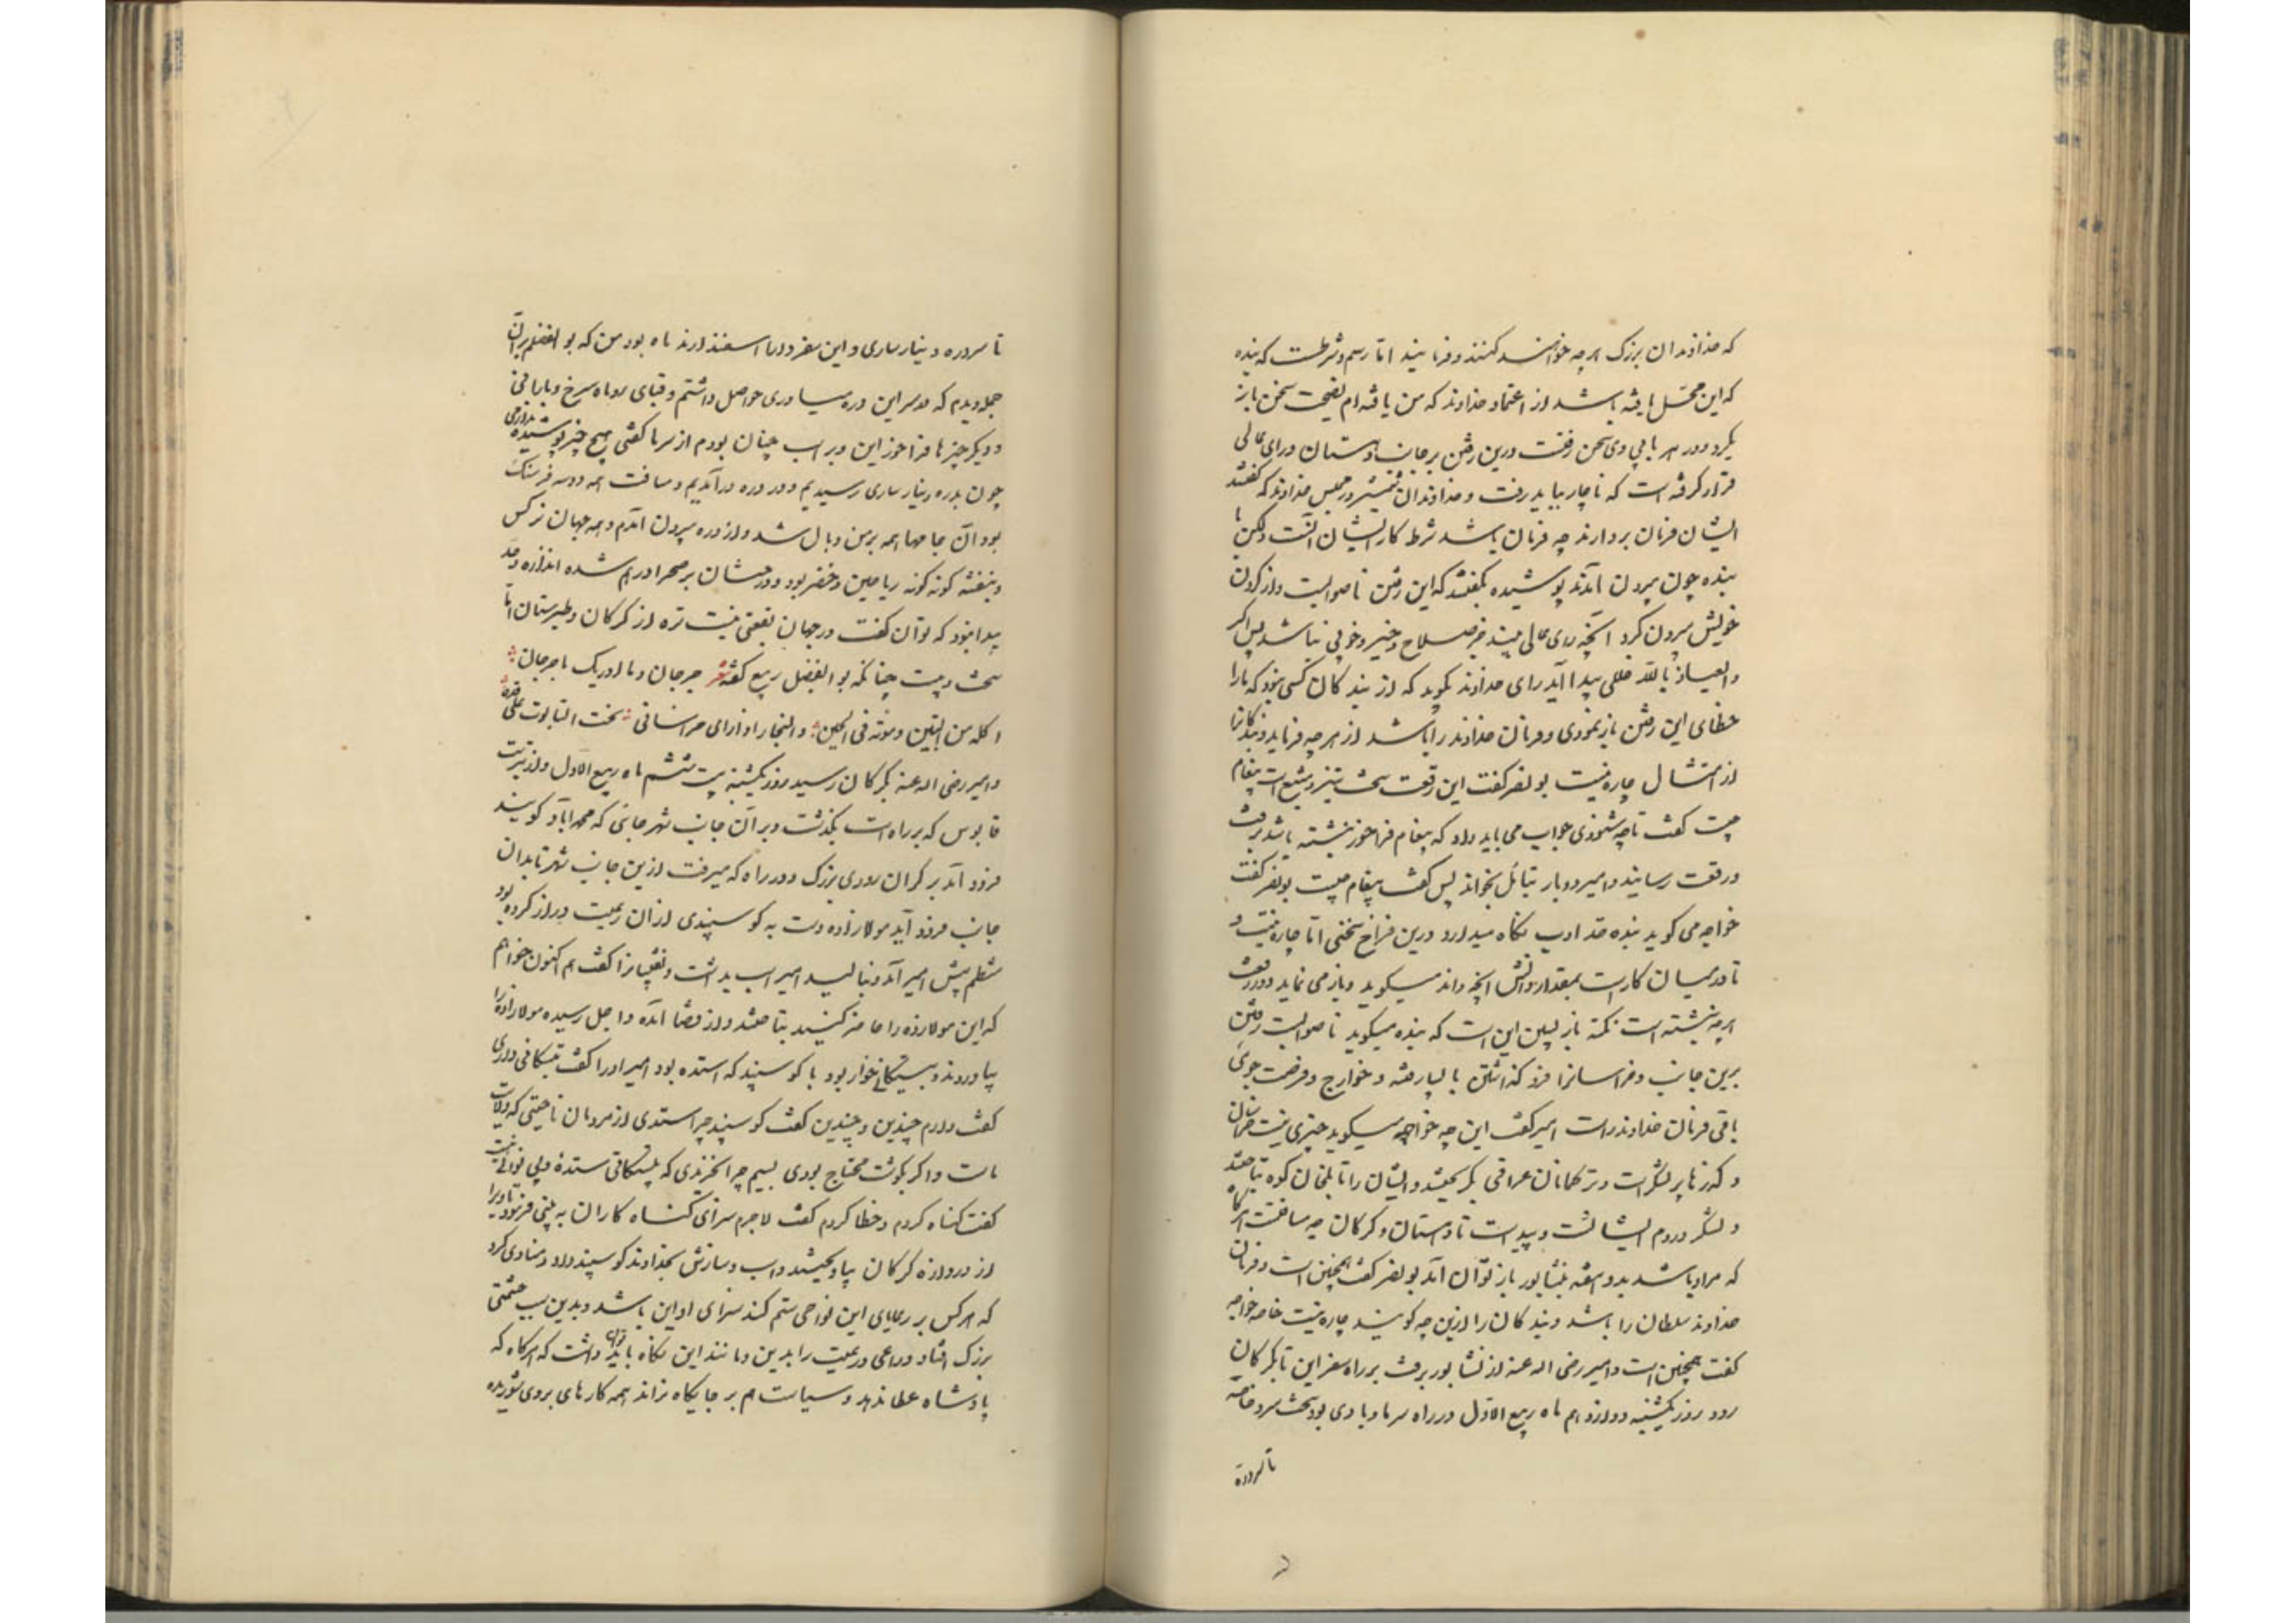 که خداوندان بزرگ هر چه خواهند کنند و فرمایند اما رسم و شرطست که بنده
که این محل یافته باشد از اعتماد خداوند که من یافته‌ام نصیحت سخن باز
نگیرد و در هر بابی وی سخن رفت درین رفتن بر جانب دهستان و رای عالی
قرار گرفته است که ناچار بباید رفت و خداوندان شمشیر در مجلس خداوند که گفتند
ایشان فرمان بردارند چه فرمان باشد شرط کار ایشان آنست ولکن با
بنده چون بیرون آمدند پوشیده بگفتند که این رفتن ناصوابست و از گردن
خویش بیرون کرد آنچه رای عالی بیند جز صلاح و خیر و خوبی نباشد پس اگر
والعیاذ بالله خللی پیدا آید رای خداوند نگوید که از بندگان کسی نبود که ما را
خطای این رفتن باز نمودی و فرمان خداوند را باشد از هر چه فرماید و بندگانرا
از امتثال چاره نیست بونصر گفت این رقعت سخت تیز و مشبع است پیغام
چیست گفت تا چه شنوذی جواب می باید داد که پیغام فراخور نبشته باشد برفت
و رقعت رسانید و امیر دو بار بتأمل بخواند پس گفت پیغام چیست بونصر گفت
خواجه می گوید بنده حد ادب نگاه میدارد درین فراخ سخنی اما چاره نیست و
تا در میان کارست بمقدار دانش آنچه داند میگوید و باز می نماید و در رقعت
هر چه نبشته است نکته باز پسین این است که بنده میگوید ناصوابست رفتن
برین جانب و خراسانرا فرو گذاشتن با لپارفته و خوارج و فرصت جوی
باقی فرمان خداوند راست امیر گفت این چه خواجه میگوید چیزی نیست خراسان
و گذرها پر لشکر است و ترکمانان عراقی بگریختند و ایشان را تا بلخان کوه بتاختند
و لشکر در دم ایشانست و پیداست تا دهستان و گرگان چه مسافتست هرگاه
که مراد باشد بدو هفته بنشابور باز توان آمد بونصر گفت همچنین است و فرمان
خداوند سلطان را باشد و بندگان را ازین چه گویند چاره نیست خاصه خواجه
گفت همچنین است و امیر رضی الله عنه از نشابور برفت بر راه سفراین تا بگرگان
رود روز یکشنبه دوازدهم ماه ربیع الاول در راه سرما و بادی بود سخت سرد خاصه
تا سردره
تا سردره دینارساری و این سفر در ماه اسفندارمذ ماه بود من که بوالفضلم بر آن
جمله دیدم که در سر این دره سیاه وری حواصل داشتم و قبای روباه سرخ و بارانی
و دیگر چیزها فراخور این و بر اسب چنان بودم از سرما گفتی هیچ چیز پوشیده ندارمی
چون بدره دینار ساری رسیدیم و در دره درآمدیم و مسافت همه دو سه فرسنگ
بود آن جامها همه بر من وبال شد و از دره بیرون آمدم و همه جهان نرگس
و بنفشه گونه گونه ریاحین و خضر بود و درختان بر صحرا درهم شده اندازه و حد
پیدا نبود که توان گفت در جهان بقعتی نیست نزه از گرگان و طبرستان اما
سخت وبیست چنانکه بوالفضل ربیع گفته شعر جرجان و ما ادریک ما جرجان
اکله من التین و موته فی الحین و النجار اذا رای خراسانی نحت التابوت علی قده
و امیر رضی الله عنه بگرگان رسید روز یکشنبه بیست ششم ماه ربیع الاول و از تربت
قابوس که بر راه است بگذشت و بر آن جانب شهر جائی که محمدآباد گویند
فرود آمد بر کران رودی بزرگ و در راه که میرفت ازین جانب شهر تا بدان
جانب فرود آید مولازاده دست به گوسپندی از آن رعیت دراز کرده بود
متظلم پیش امیر آمد و بنالید امیر اسب بداشت و نقیبانرا گفت هم اکنون خواهم
که این مولازاده را حاضر کنید بتاختند و از قضا آمده و اجل رسیده مولازاده را
بیاوردند و بیستگانی خوار بود با گوسپند که استده بود امیر او را گفت بیستگانی داری
گفت دارم چندین و چندین گفت گوسپند چرا استدی از مردمان ناحیتی که ولایت
ماست و اگر بگوشت محتاج بودی بسیم چرا نخریدی که بیستگانی ستدۀ و بی نوا نیستی
گفت گناه کردم و خطا کردم گفت لاجرم سزای گناه کاران به بینی فرمود تا ویرا
از دروازه گرگان بیاویختند و اسب و سازش بخداوند گوسپند داد و منادی کرد
که هر کس بر رعایای این نواحی ستم کند سزای او این باشد و بدین سبب حشمتی
بزرگ افتاد و راعی و رعیت را بدین و مانند این نگاه تواند داشت که هرگاه که
پادشاه عطا ندهد و سیاست هم بر جایگاه نراند همه کارهای بر وی شوریده